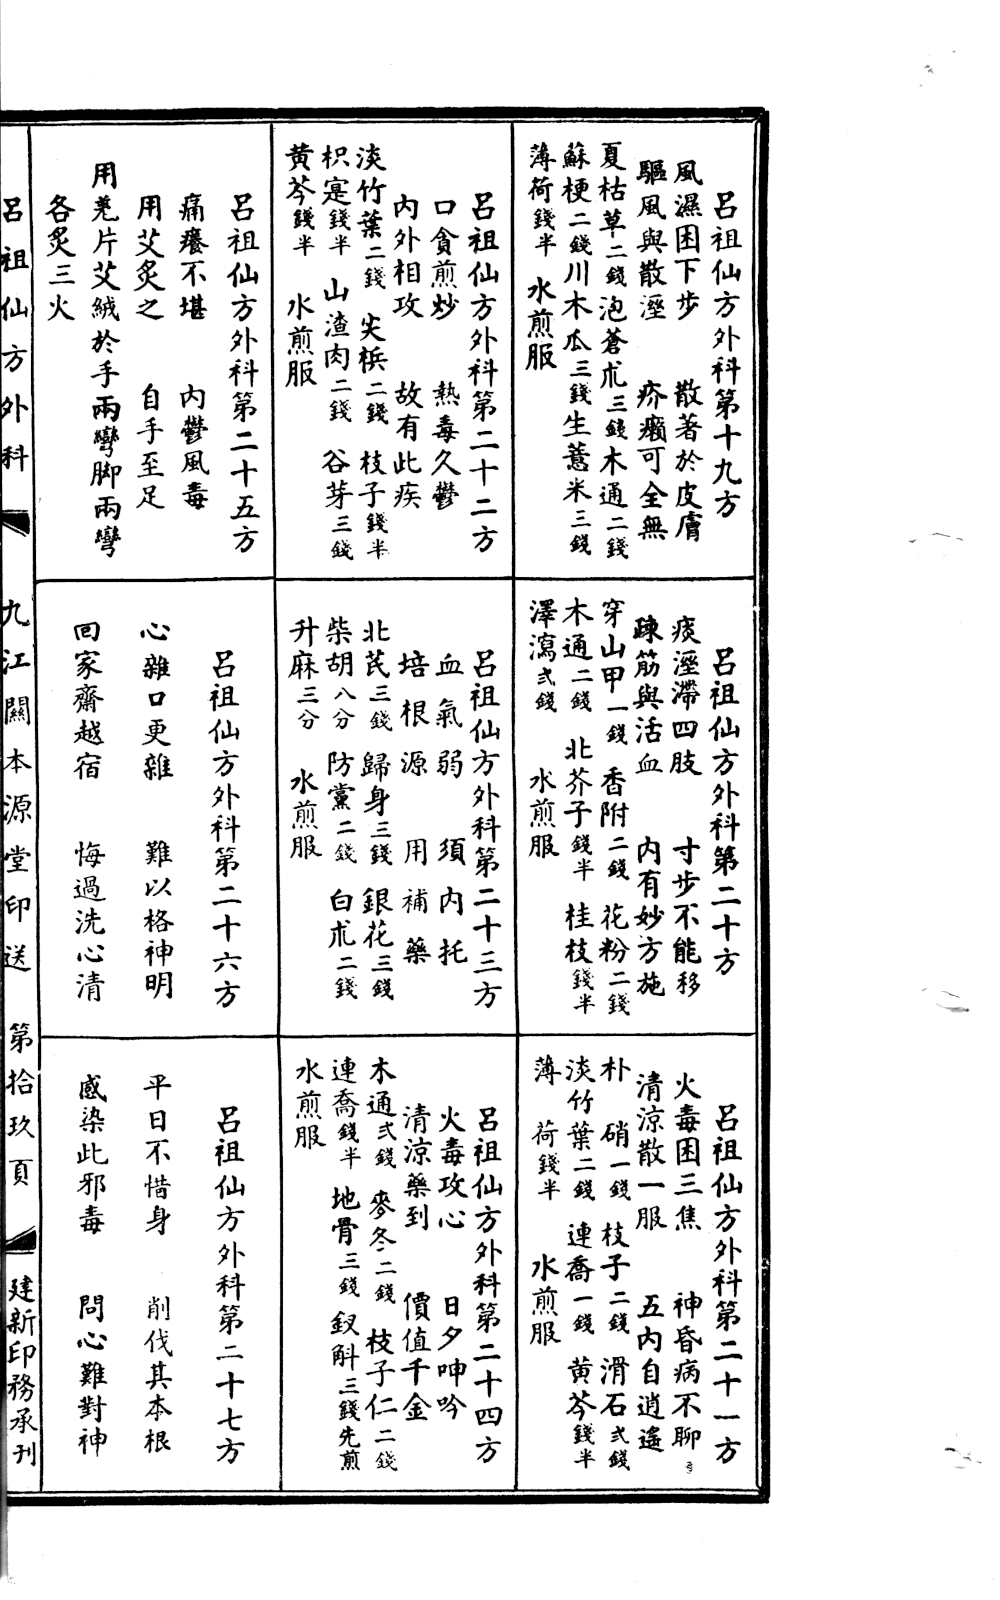 呂祖仙方外科第十九方
風濕困下步　散著於皮膚
驅風與散溼　疥癩可全無
夏枯草二錢泡蒼朮三錢木通二錢
蘇梗二錢川木瓜三錢生薏米三錢
薄荷錢半　水煎服
呂祖仙方外科第二十方
痰溼滯四肢　寸步不能移
疎筋與活血　內有妙方施
穿山甲一錢　香附二錢　花粉二錢
木通二錢　北芥子錢半　桂枝錢半
澤瀉弍錢　水煎服
呂祖仙方外科第二十一方
火毒困三焦　神昏病不聊
清涼散一服　五內自逍遙
朴硝一錢　枝子二錢　滑石弍錢
淡竹葉二錢　連喬一錢　黃芩錢半
薄荷錢半　水煎服
呂祖仙方外科第二十二方
口貪煎炒　熱毒久鬱
內外相攻　故有此疾
淡竹葉二錢　尖梹二錢　枝子錢半
枳寔錢半　山渣肉二錢　谷芽三錢
黃芩錢半　水煎服
呂祖仙方外科第二十三方
血氣弱　須內托
培根源　用補藥
北芪三錢　歸身三錢　銀花三錢
柴胡八分　防黨二錢　白朮二錢
升麻三分　水煎服
呂祖仙方外科第二十四方
火毒攻心　日夕呻吟
清涼藥到　價值千金
木通弍錢　麥冬二錢　枝子仁二錢
連喬錢半　地骨三錢　釵斛三錢先煎
水煎服
呂祖仙方外科第二十五方
痛癢不堪　內鬱風毒
用艾炙之　自手至足
用羗片艾絨於手兩彎脚兩彎
各炙三火
呂祖仙方外科第二十六方
心雜口更雜　難以格神明
回家齋越宿　悔過洗心清
呂祖仙方外科第二十七方
平日不惜身　削伐其本根
感染此邪毒　問心難對神
呂祖仙方外科　九江關本源堂印送　第拾玖頁　建新印務承刊